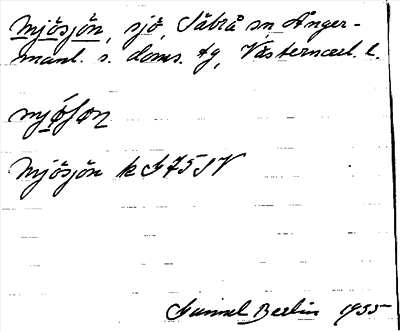 Mjösjön, sjö, Säbrå sn Ånger-
manl. s. doms. tg, Västernorrl. l.
Mjösjön k G 75 SV
Gunnel Berlin 1935